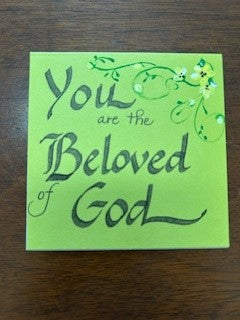 You
are the
Beloved
of God